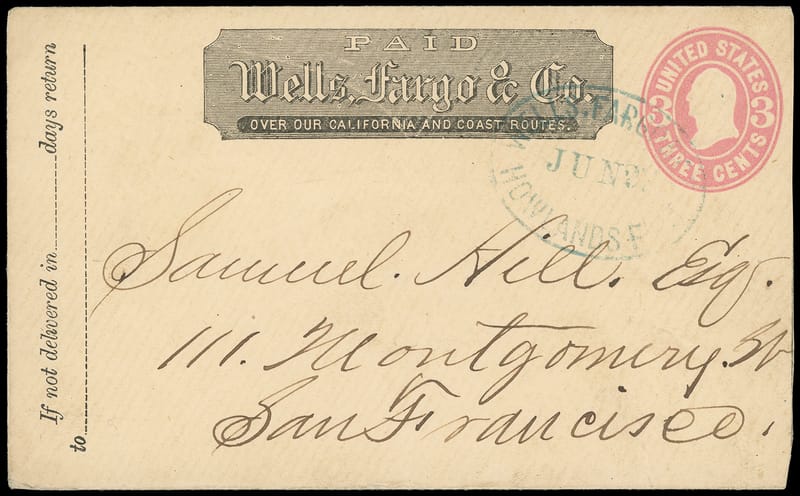 PAID
Wells, Fargo & Co.
OVER OUR CALIFORNIA AND COAST ROUTES.
UNITED STATES
3 3
THREE CENTS
WELLS, FARGO
JUN
HOWLANDS F
If not delivered in days return
to
Samuel. Hill. Esq.
111. Montgomery. St
San Francisco.